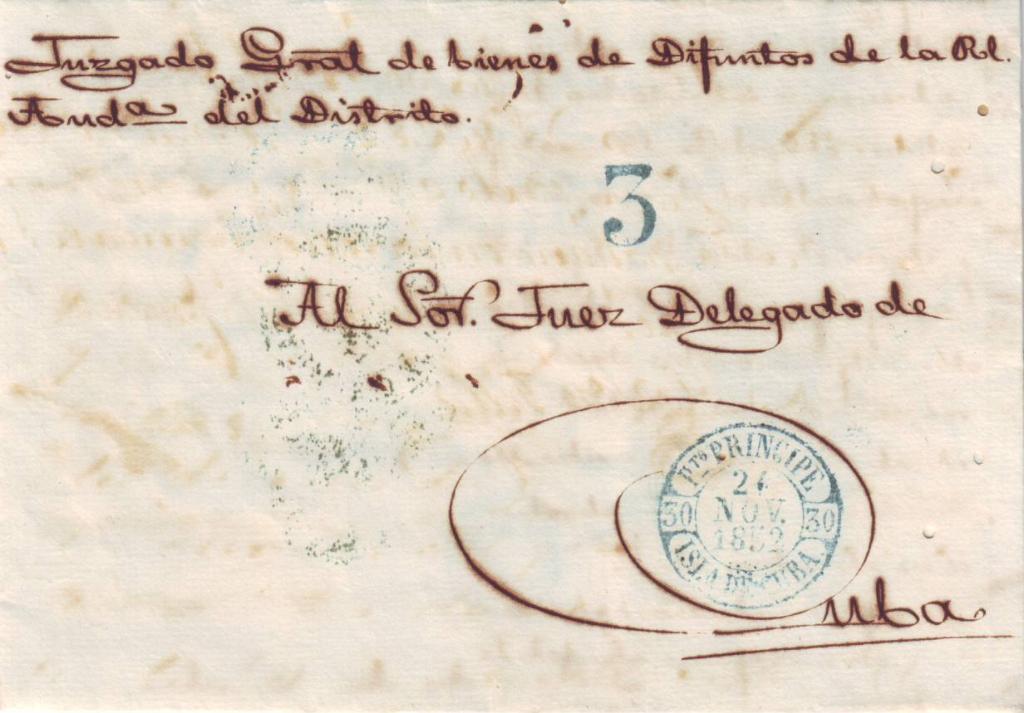 Juzgado Gral de bienes de Difuntos de la Rl.
Audª del Distrito.
3
Al Sor. Juez Delegado de
Pto PRINCIPE
30 24 30
NOV.
1852
ISLA DE CUBA
Cuba